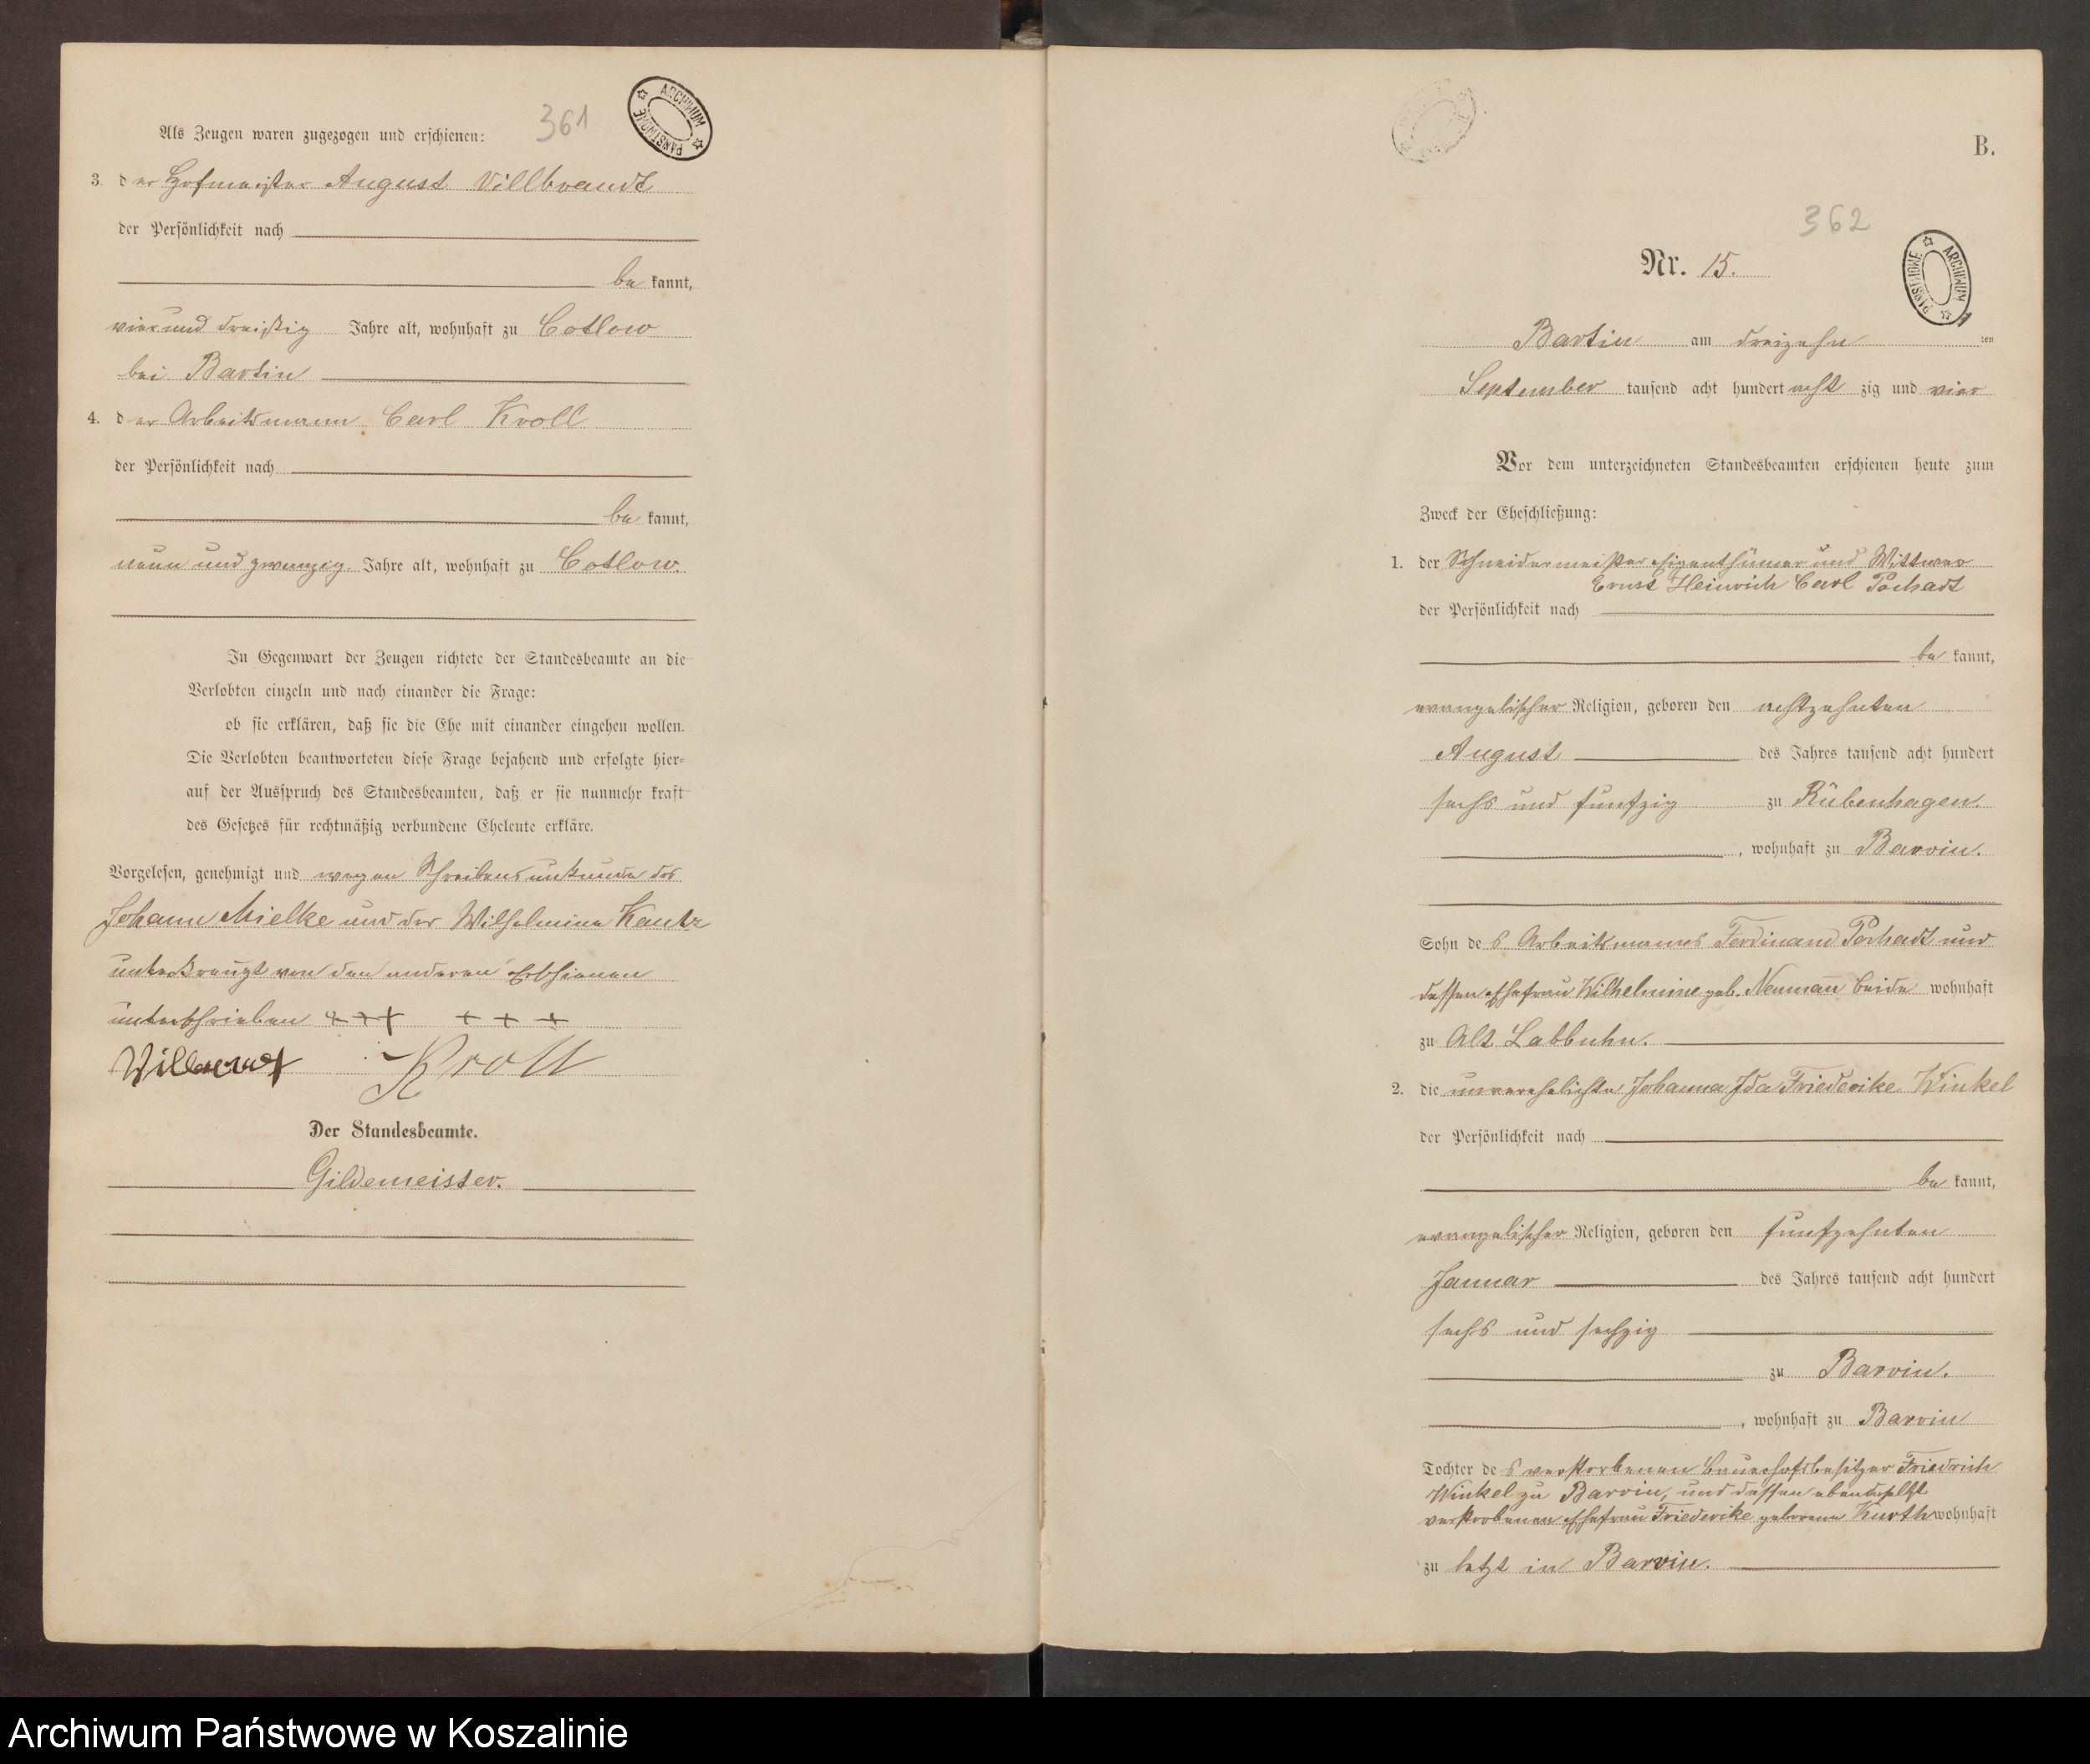 361
ARCHIWUM PAŃSTWOWE
Als Zeugen waren zugezogen und erschienen:
3. der Hofmeister August Villbrandt
der Persönlichkeit nach
be kannt,
vier und dreißig Jahre alt, wohnhaft zu Cotlow
bei Bartin
4. der Arbeitsmann Carl Kroll
der Persönlichkeit nach
be kannt,
neun und zwanzig Jahre alt, wohnhaft zu Cotlow.
In Gegenwart der Zeugen richtete der Standesbeamte an die
Verlobten einzeln und nach einander die Frage:
ob sie erklären, daß sie die Ehe mit einander eingehen wollen.
Die Verlobten beantworteten diese Frage bejahend und erfolgte hier-
auf der Ausspruch des Standesbeamten, daß er sie nunmehr kraft
des Gesetzes für rechtmäßig verbundene Eheleute erkläre.
Vorgelesen, genehmigt und wegen Schreibensunkunde des
Johann Mielke und der Wilhelmine Kautz
unterkreuzt von den anderen Erschienen
unterschrieben +++ + + +
Villbrandt Kroll
Der Standesbeamte.
Gildemeister.
B.
362
Nr. 15.
ARCHIWUM PAŃSTWOWE
Bartin am dreizehn ten
September tausend acht hundert acht zig und vier
Vor dem unterzeichneten Standesbeamten erschienen heute zum
Zweck der Eheschließung:
1. der Schneidermeister Eigenthümer und Wittwer
Ernst Heinrich Carl Pochadt
der Persönlichkeit nach
be kannt,
evangelischer Religion, geboren den achtzehnten
August des Jahres tausend acht hundert
sechs und funfzig zu Rübenhagen.
, wohnhaft zu Barvin.
Sohn des Arbeitsmannes Ferdinand Pochadt und
dessen Ehefrau Wilhelmine geb. Neumann beide wohnhaft
zu Alt Labbuhn.
2. die unverehelichte Johanna Ida Friederike Winkel
der Persönlichkeit nach
be kannt,
evangelischer Religion, geboren den funfzehnten
Januar des Jahres tausend acht hundert
sechs und sechzig
zu Barvin.
, wohnhaft zu Barvin
Tochter des verstorbenen Bauerhofsbesitzer Friedrich
Winkel zu Barvin, und dessen ebendaselbst
verstorbenen Ehefrau Friederike geborene Kurth wohnhaft
zu letzt in Barvin.
Archiwum Państwowe w Koszalinie